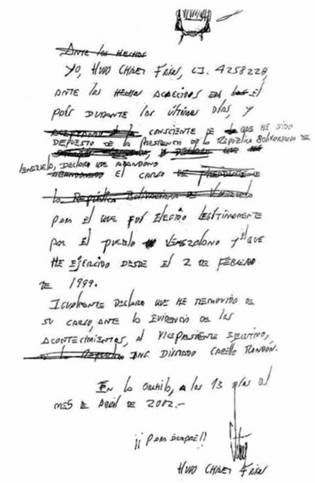 Ante los hechos
Yo, Hugo Chávez Frías, C.I. 4258228,
ante los hechos acaecidos en el
país durante los últimos días y
consciente de que he sido
depuesto de la Presidencia de la República Bolivariana de
Venezuela, declaro que abandono
abandonando el cargo de Presidente de
la República Bolivariana de Venezuela
para el que fui electo legítimamente
por el pueblo venezolano y que
he ejercido desde el 2 de febrero
de 1999.
Igualmente declaro que he removido de
su cargo, ante la evidencia de los
acontecimientos, al Vicepresidente Ejecutivo,
Ing. Diosdado Cabello Rondón.
En La Orchila, a los 13 días del
mes de abril de 2002.-
¡¡Para siempre!!
Hugo Chávez Frías